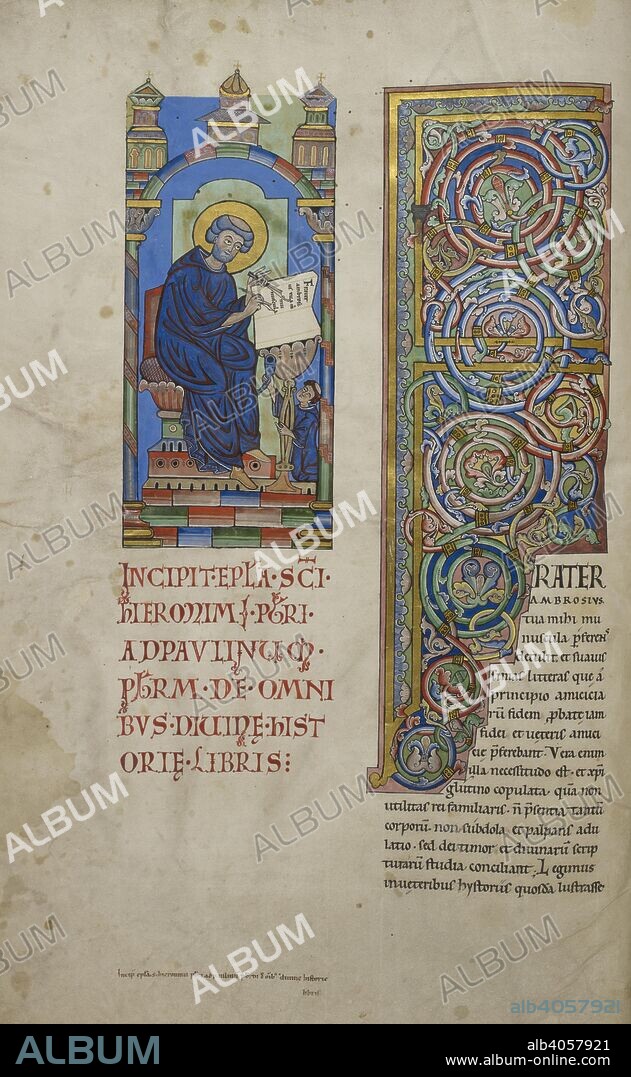 Frater
ambrosi
INCIPIT·EPLA·SCI·
HIERONIMI·PBRI·
AD PAVLINUM·
PBRM·DE·OMNI
BVS·DIVINĘ·HIST
ORIĘ·LIBRIS:
RATER
AMBROSIVS
tua mihi mu
nuscula pferens
detulit et suauis
simas litteras que a
principio amicicia
rū fidem pbate iam
fidei et ueteris amici
cię pferebant· Vera enim
illa necessitudo est· et xpi
glutino copulata· quā non
utilitas rei familiaris· n̄ psentia tantū
corporū· non subdola et palpans adu
latio· sed dei timor et diuinarū scrip
turarū studia conciliant· Legimus
in ueteribus hystoriis quosdā lustrasse
libris
ALBUM
alb4057921
ALBUM
alb4057921
www.album-online.com